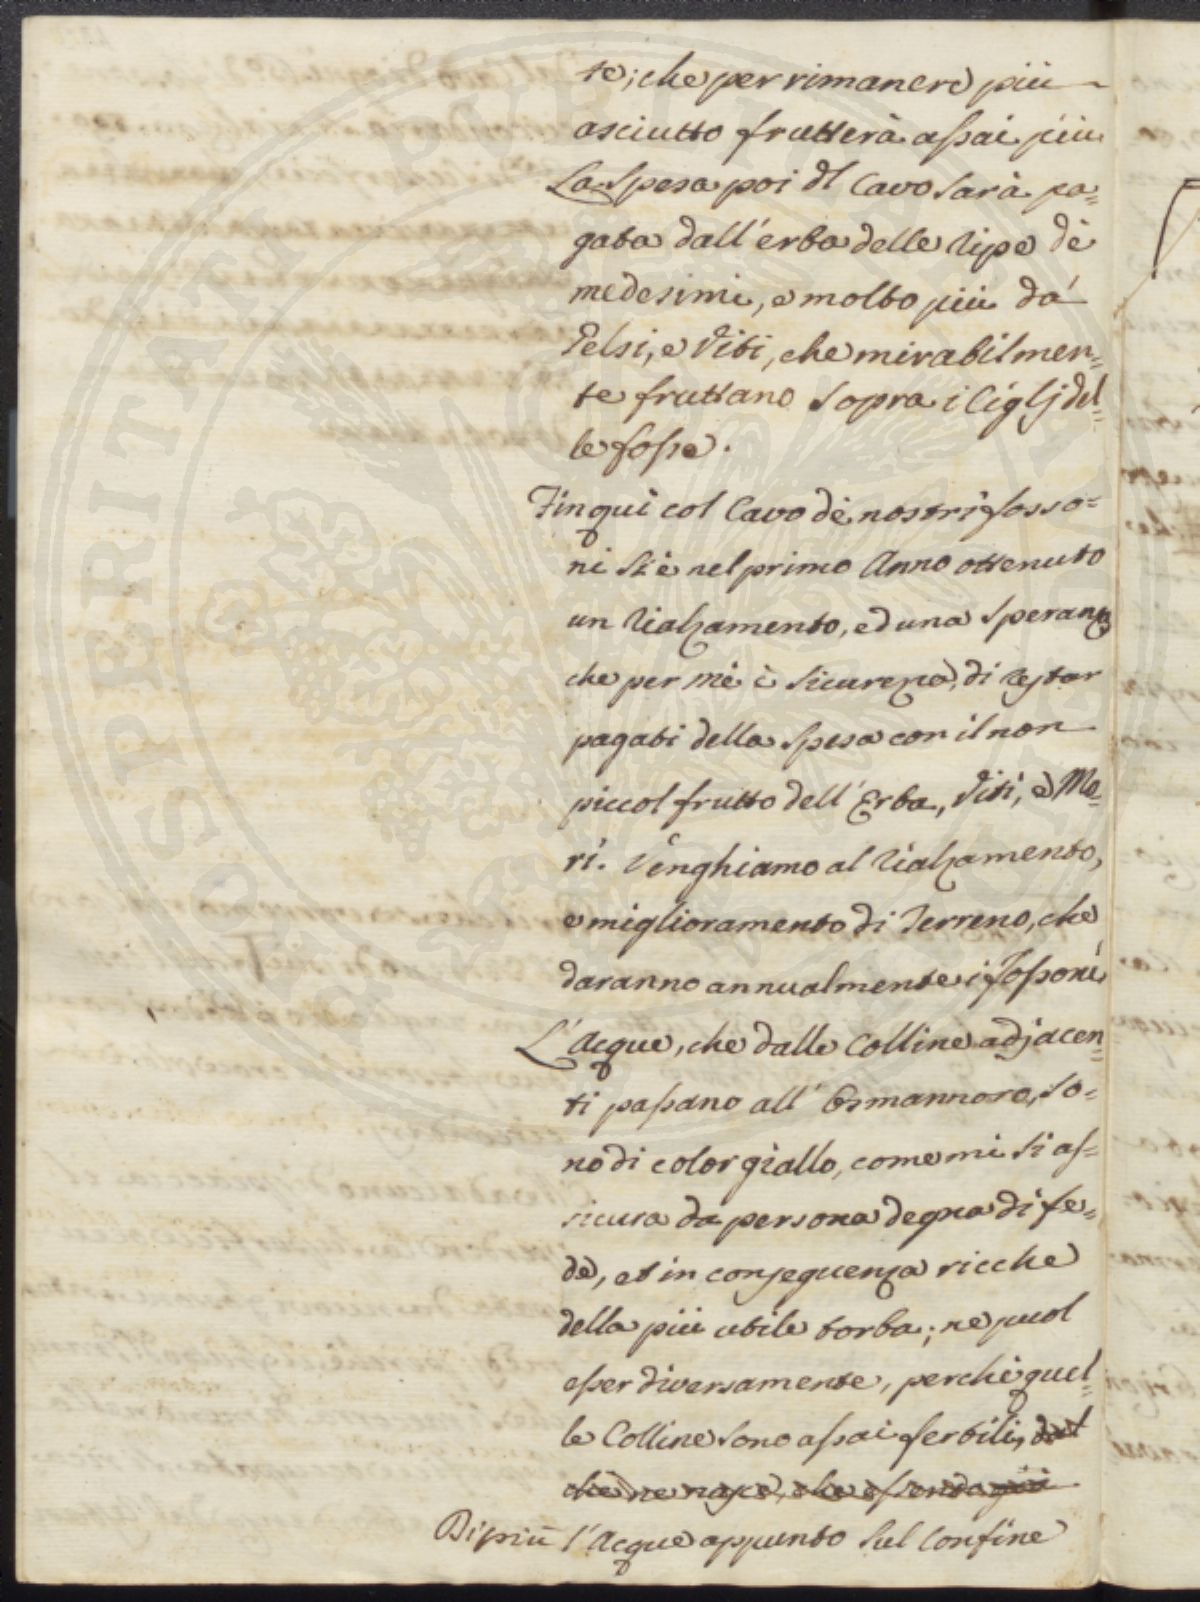 te; che per rimanere più
asciutto frutterà assai più
La Spesa poi dl Cavo sarà pa=
gata dall'erba delle ripe dè
medesimi, e molto più da'
Gelsi, e Viti, che mirabilmen=
te fruttano sopra i Ciglj del=
le fosse.
Fin qui col Cavo dè nostri fosso=
ni si è nel primo Anno ottenuto
un rialzamento, ed una speranza
che per mè è sicurezza, di restar
pagati della spesa con il non
piccol frutto dell'Erba, Viti, e Mo=
ri. Venghiamo al rialzamento,
e miglioramento di Terreno, che
daranno annualmente i Fossoni
L'Acque, che dalle Colline adjacen=
ti passano all'Osmannoro, so=
no di color giallo, come mi si as=
sicura da persona degna di fe=
de, et in conseguenza ricche
della più utile torba; ne puol
esser diversamente, perchè quel=
le Colline sono assai fertili, dal
che ne nasce, che essendo più
Di più l'Acque appunto sul confine
SOSPERITATI PUBLICAE